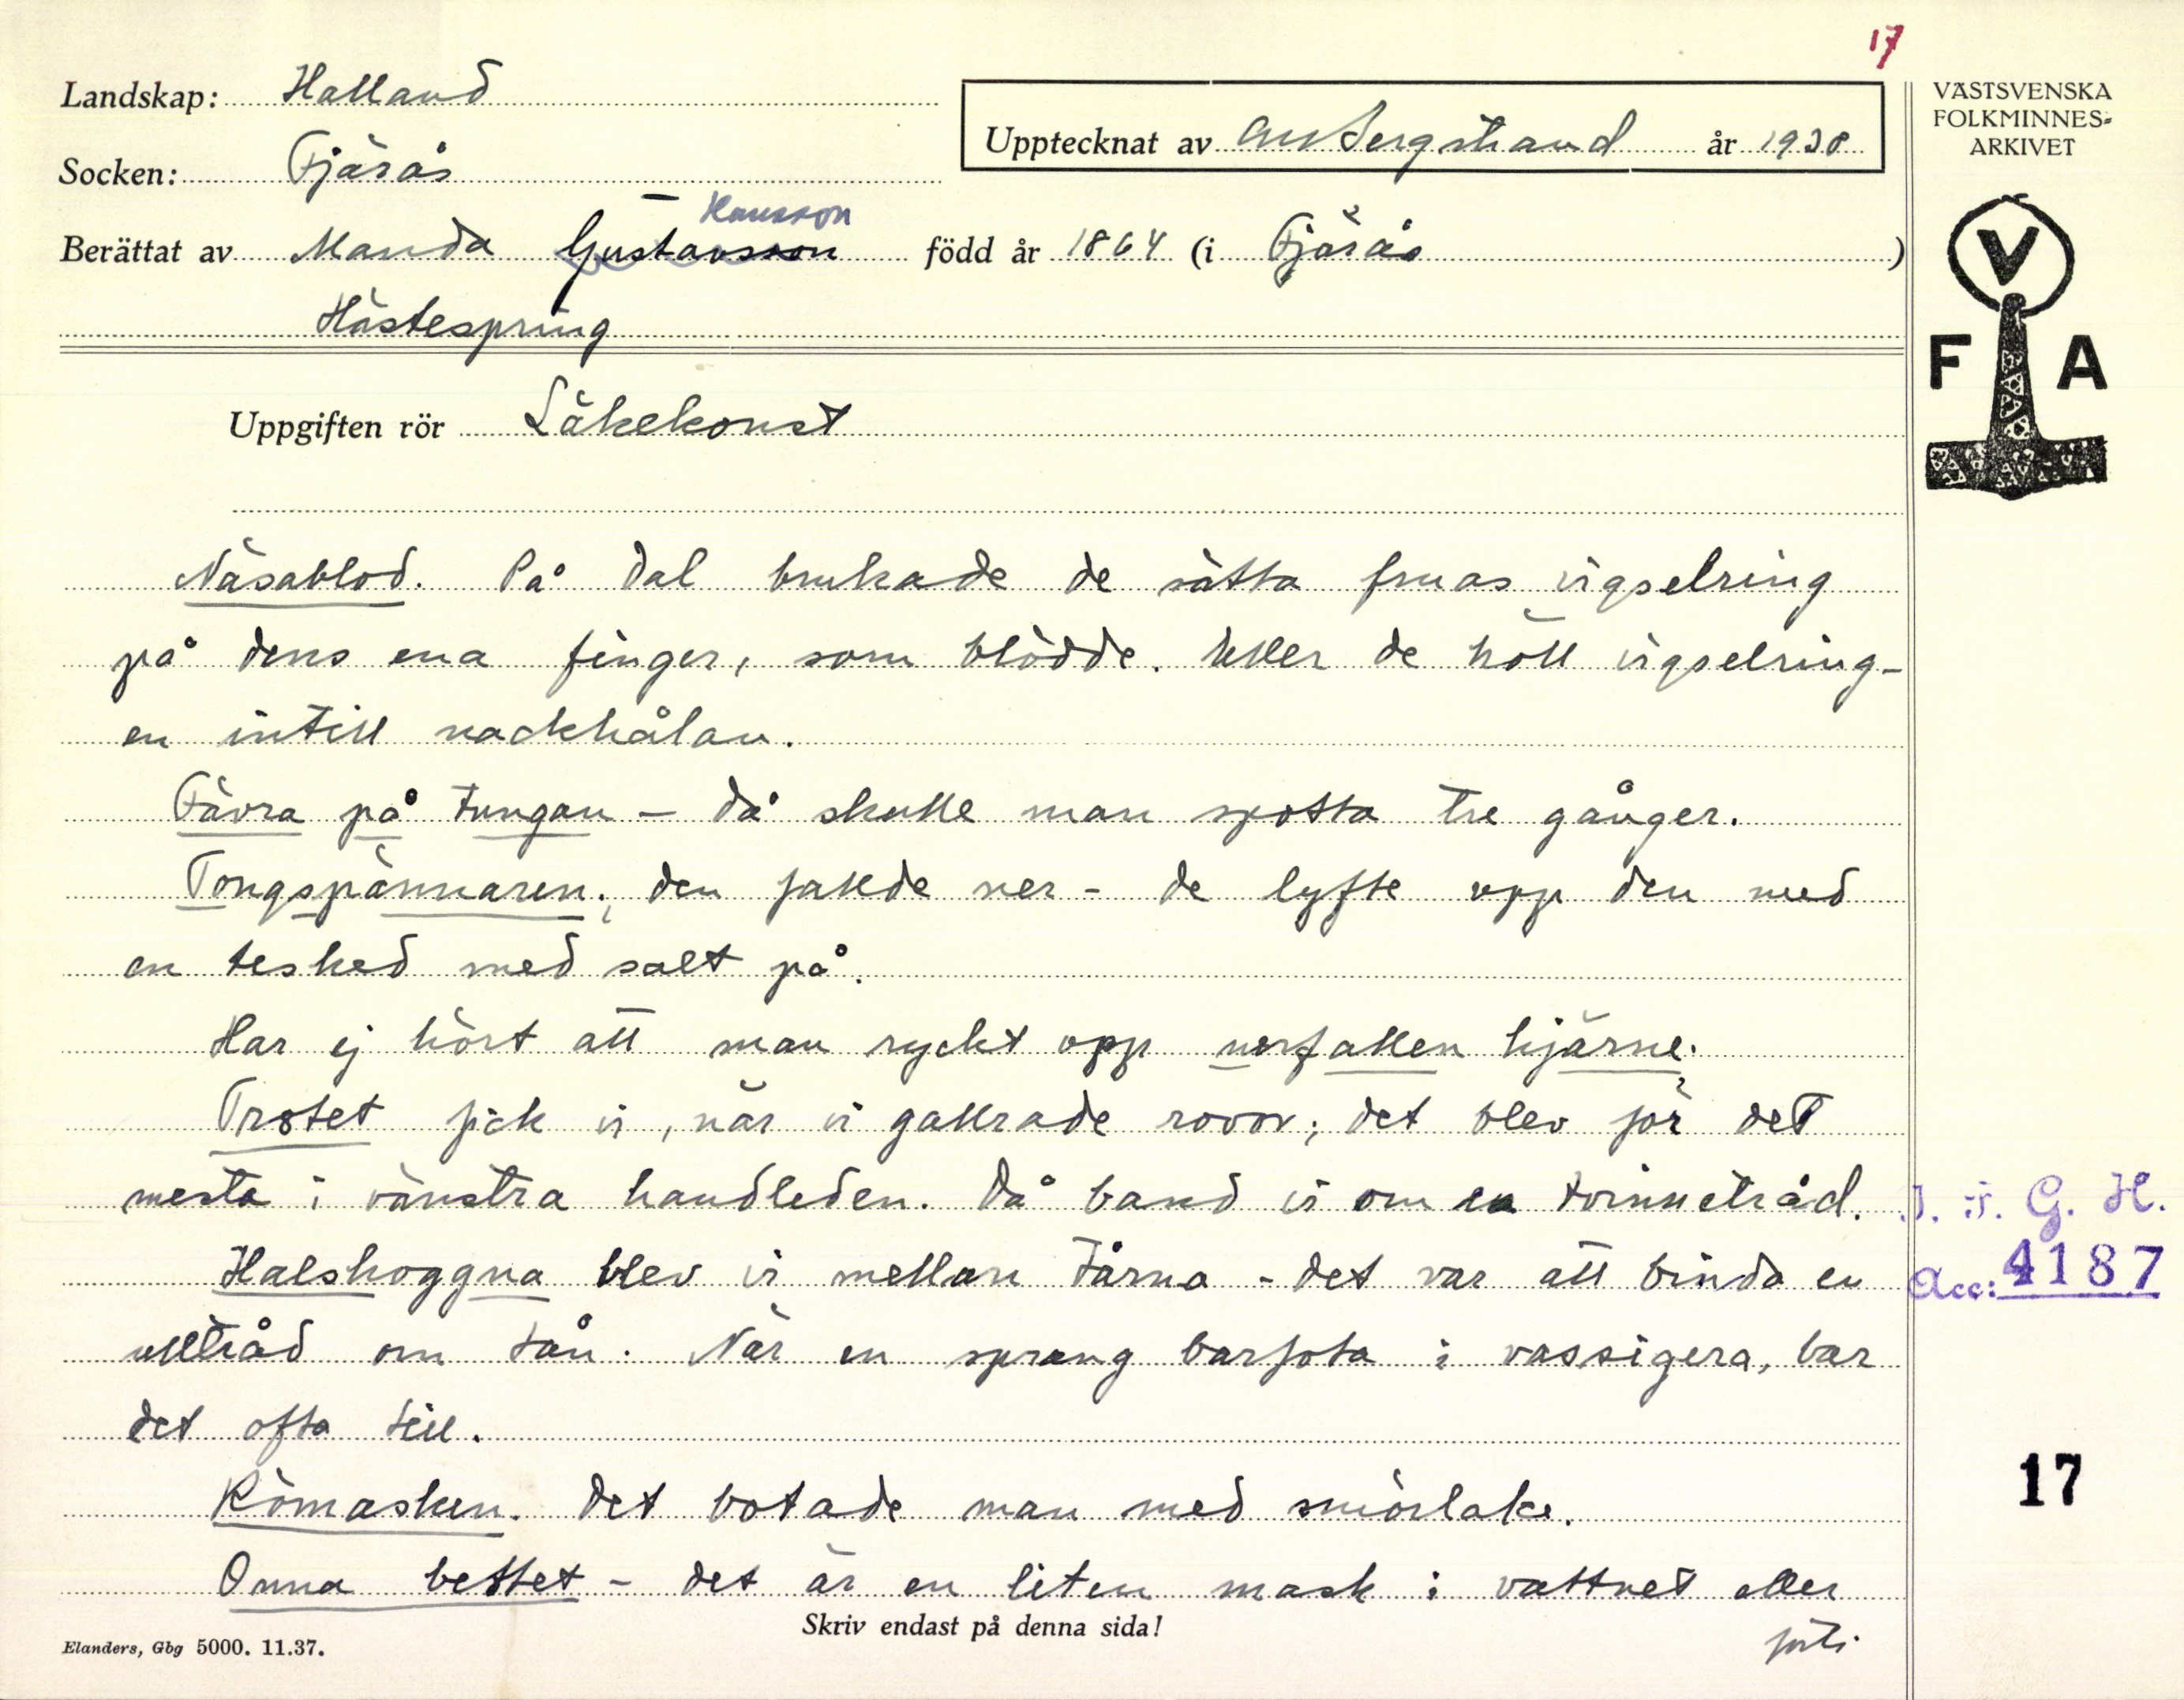 17
Landskap: Halland
Upptecknat av AW Bergstrand år 1938
VÄSTSVENSKA
FOLKMINNES=
ARKIVET
Socken: Fjärås
Hansson
Berättat av Manda Gustavsson född år 1864 (i Fjärås )
Hästespring
V
F A
Uppgiften rör Läkekonst
Näsablod. På Dal brukade de sätta fruas vigselring
på dens ena finger, som blödde. Eller de höll vigselring-
en intill nackhålan.
Fävra på tungan – då skulle man spotta tre gånger.
Tongspännaren; den fallde ner – de lyfte opp den med
en tesked med salt på.
Har ej hört att man ryckt opp nerfallen hjärne.
Trotet fick vi, när vi gallrade rovor; det blev för det
mesta i vänstra handleden. Då band vi om en tvinnetråd.
Halshoggna blev vi mellan tårna – det var att binda en
ulltråd om tån. När en sprang barfota i vassigera, bar
det ofta till.
Römasken. Det botade man med smörlake.
Onna bettet – det är en liten mask i vattnet eller
forts.
I. F. G. H.
Acc: 4187
17
Skriv endast på denna sida!
Elanders, Gbg 5000. 11.37.